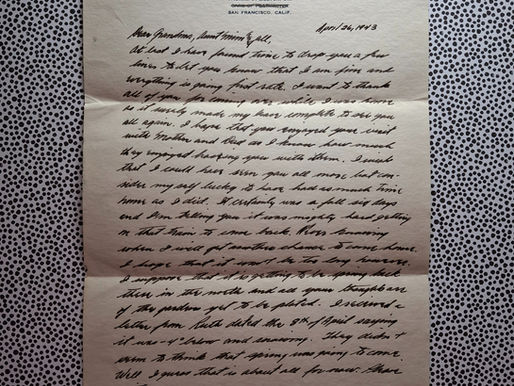 CARE OF POSTMASTER
SAN FRANCISCO, CALIF.
April 26, 1943
Dear Grandma, Aunt Minn & all,
At last I have found time to drop you a few
lines to let you know that I am fine and
everything is going first rate. I want to thank
all of you for coming over while I was home
as it surely made my leave complete to see you
all again. I hope that you enjoyed your visit
with Mother and Dad as I know how much
they enjoyed having you with them. I wish
that I could have seen you all more but con-
sider my self lucky to have had as much time
home as I did. It certainly was a full six days
and I'm telling you it was mighty hard getting
on that train to come back. No knowing
when I will get another chance to come home.
I hope that it won't be too long however.
I suppose that it is getting to be spring back
there in the north and all your thoughts are
of the garden yet to be planted. I received a
letter from Ruth dated the 8th of April saying
it was -4° below and snowing. They didn't
seem to think that spring was going to come.
Well, I guess that is about all for now.